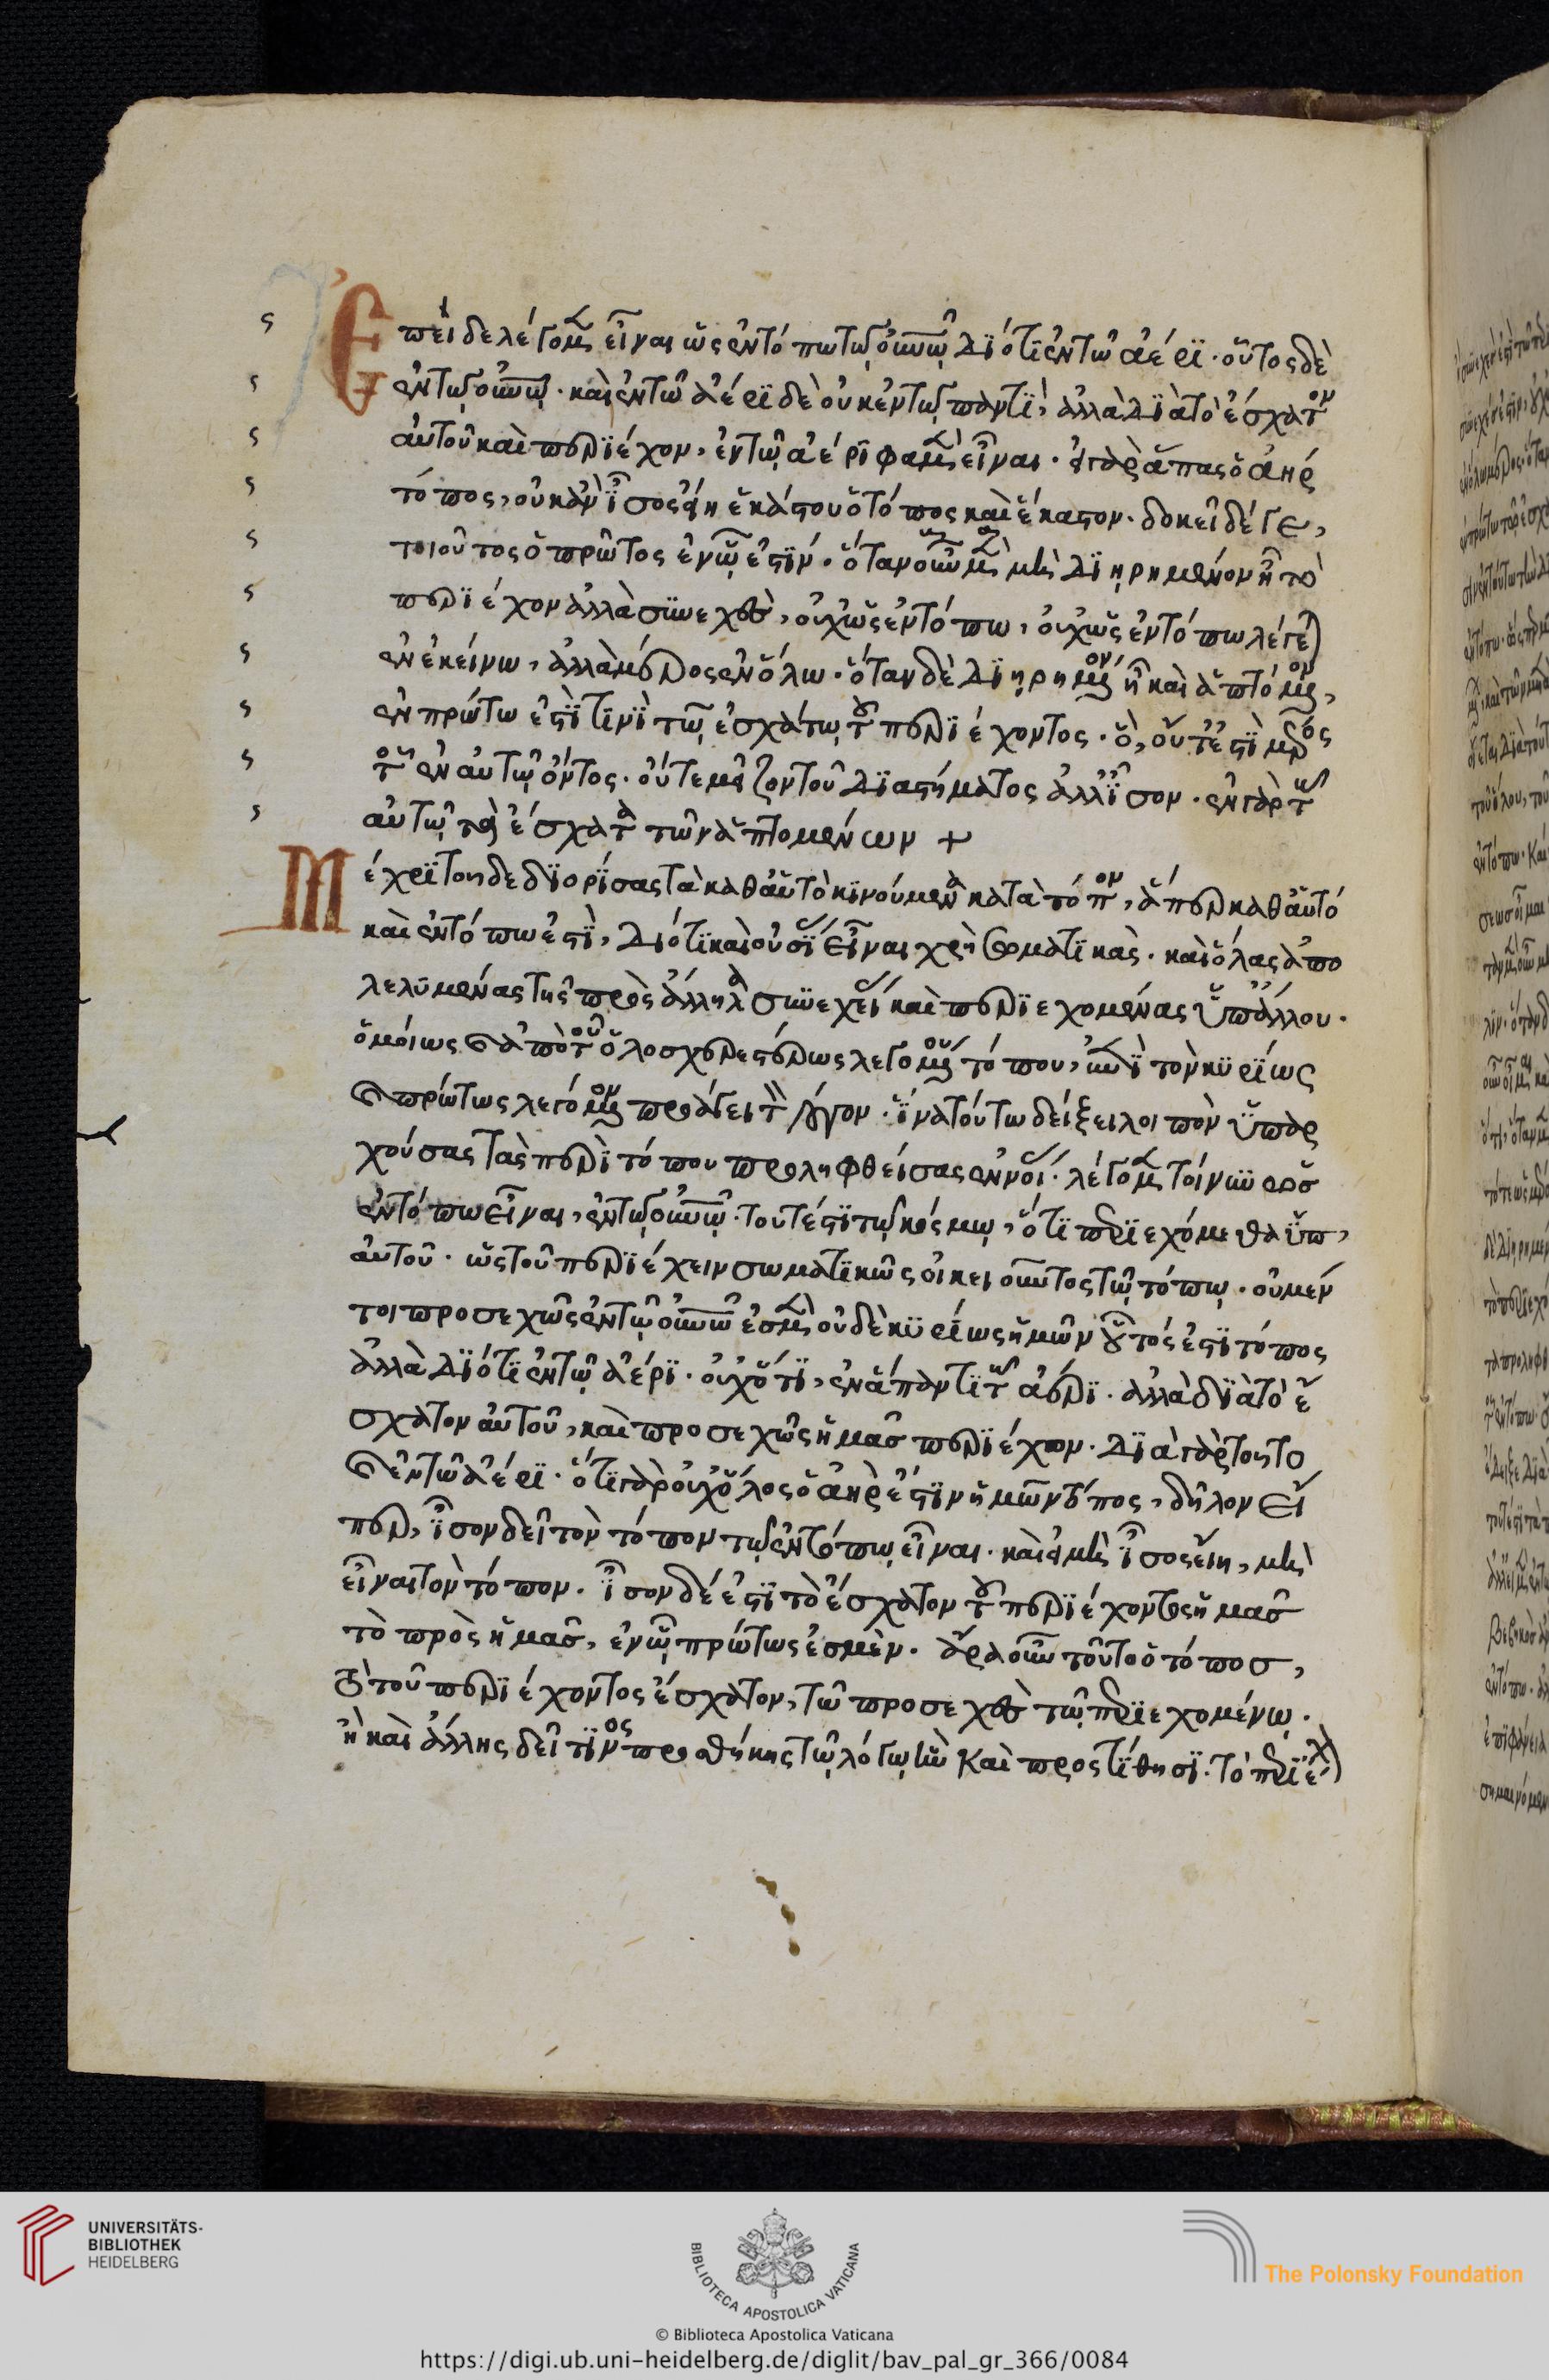 Ἐπεὶ δὲ λέγομεν εἶναι ὡς ἐν τόπω τῷ οὐνῷ, διότι ἐν τῶ ἀέρι· οὗτος δὲ
ἐν τῷ οὐνῷ· καὶ ἐν τῶ ἀέρι δὲ οὐκ ἐν τῷ παντὶ, ἀλλὰ διὰ τὸ ἔσχατον
αὐτοῦ καὶ περιέχον, ἐν τῷ ἀέρι φαμὲν εἶναι· εἰ γὰρ ἅπας ὁ ἀὴρ
τόπος, οὐκ ἂν ἴσος εἴη ἑκάστου ὁ τόπος καὶ ἕκαστον· δοκεῖ δέ γε,
τοιοῦτος ὁ πρῶτος ἐν ᾧ ἐστίν· ὅταν οὖν μὲν μὴ διηρημένον ᾖ τὸ
περιέχον ἀλλὰ συνεχὲς, οὐχ ὡς ἐν τόπω, οὐχ ὡς ἐν τόπω λέγε)
ἐν ἐκείνω, ἀλλὰ μέρος ἐν ὅλω· ὅταν δὲ διηρημένον ᾖ καὶ ἁπτόμενον,
ἐν πρώτω ἐστὶ τινὶ τῷ ἐσχάτῳ τοῦ περιέχοντος· ὃ, οὔτέ ἐστι μέρος
τοῦ ἐν αὐτῷ ὄντος· οὔτε μεῖζον τοῦ διαστήματος ἀλλ' ἴσον· ἐν γὰρ τῷ
αὐτῷ τὰ ἔσχατα τῶν ἁπτομένων +
Μέχρι τοῦδε διορίσας τὰ καθ' αὑτὸ κινούμενα κατὰ τόπον, ἅπερ καθ' αὑτό
καὶ ἐν τόπω ἐστὶ, διότι καὶ οὐσίας εἶναι χρὴ σωματικὰς· καὶ ὅλας ἀπο
λελυμένας τῆς πρὸς ἄλληλα συνεχείας καὶ περιεχομένας ὑπ' ἄλλου·
ὁμοίως δὲ ἀπὸ τοῦ ὁλοσχερεστέρως λεγομένου τόπου, ἐπὶ τὸν κυρίως
καὶ πρώτως λεγόμενον προάγει τὸν λόγον· ἵνα τούτω δείξει λοιπὸν ὑπαρ
χούσας τὰς περὶ τόπου προληφθείσας ἐννοίας· λέγομεν τοίνυν φησὶν
ἐν τόπω εἶναι, ἐν τῷ οὐνῷ· τουτέστι τῷ κόσμῳ, ὅτι περιεχόμεθα ὑπ'
αὐτοῦ· ὡς τοῦ περιέχειν σωματικῶς οἰκείου ὄντος τῷ τόπῳ· οὐ μέν
τοι προσεχῶς ἐν τῷ οὐνῶ ἐσμὲν οὐδὲ κυρίως ἡμῶν οὗτός ἐστι τόπος
ἀλλὰ διότι ἐν τῷ ἀέρι· οὐχ ὅτι, ἐν ἅπαντι τῷ ἀέρι· ἀλλὰ διὰ τὸ ἔ
σχατον αὐτοῦ, καὶ προσεχῶς ἡμᾶς περιέχον· διὰ γὰρ τοῦτο
καὶ ἐν τῶ ἀέρι· ὅτι γὰρ οὐχ ὅλος ὁ ἀὴρ ἐστὶν ἡμῶν τόπος, δῆλον εἴ
περ, ἴσον δεῖ τὸν τόπον τῷ ἐν τόπῳ εἶναι· καὶ εἰ μὴ ἴσος εἴη, μὴ
εἶναι τὸν τόπον· ἴσον δέ ἐστι τὸ ἔσχατον τοῦ περιέχοντος ἡμᾶς
τὸ πρὸς ἡμᾶς, ἐν ᾧ πρώτως ἐσμὲν· ἆρα οὖν τοῦτο ὁ τόπος,
τὸ τοῦ περιέχοντος ἔσχατον, τὸ προσεχὲς τῷ περιεχομένῳ·
ἢ καὶ ἄλλης δεῖ τινος προσθήκης τῷ λόγῳ ἣν καὶ προστίθησι· τὸ περιέχ)
UNIVERSITÄTS-
BIBLIOTHEK
HEIDELBERG
BIBLIOTECA APOSTOLICA VATICANA
The Polonsky Foundation
© Biblioteca Apostolica Vaticana
https://digi.ub.uni-heidelberg.de/diglit/bav_pal_gr_366/0084